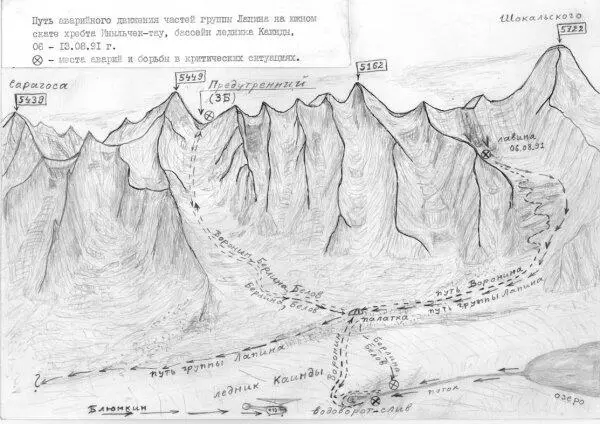 Путь аварийного движения частей группы Лапина на южном
скате хребта Иныльчек-тау, бассейн ледника Каинды.
06 - 13.08.91 г.
⊗ - места аварий и борьбы в критических ситуациях.
Шокальского
5722
Сарагоса
5439
5449
Предутренний
(3Б)
5162
лавина
06.08.91
Воронин-Берлина Белов
Берлина Белов
путь Воронина
путь группы Лапина
палатка
Воронин
Берлина
Белов
путь группы Лапина
?
ледник Каинды
Блюмкин
водоворот-слив
поток
озеро